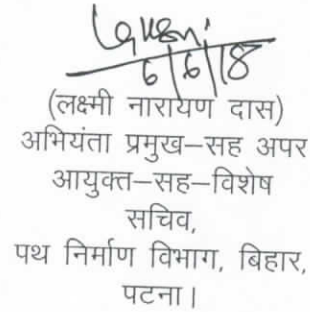 6/6/18
(लक्ष्मी नारायण दास)
अभियंता प्रमुख–सह अपर
आयुक्त–सह–विशेष
सचिव,
पथ निर्माण विभाग, बिहार,
पटना।